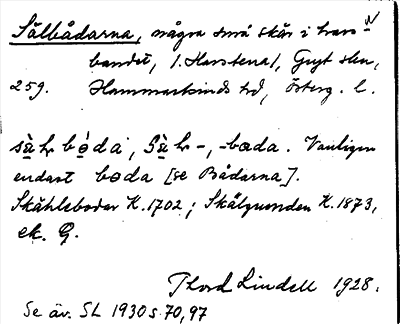 Sälbådarna, några små skär i havs-
bandet, /. Harstena/, Gryt skn,
259. Hammarkinds hd, Österg. l.
sä̀ḷ bó̀da, Sä̀ḷ -, -bada. Vanligen
endast boda [se Bådarna].
K. 1702; K. 1873,
ek. G.
Thord Lindell 1928.
Se äv. SL 1930 s. 70, 97